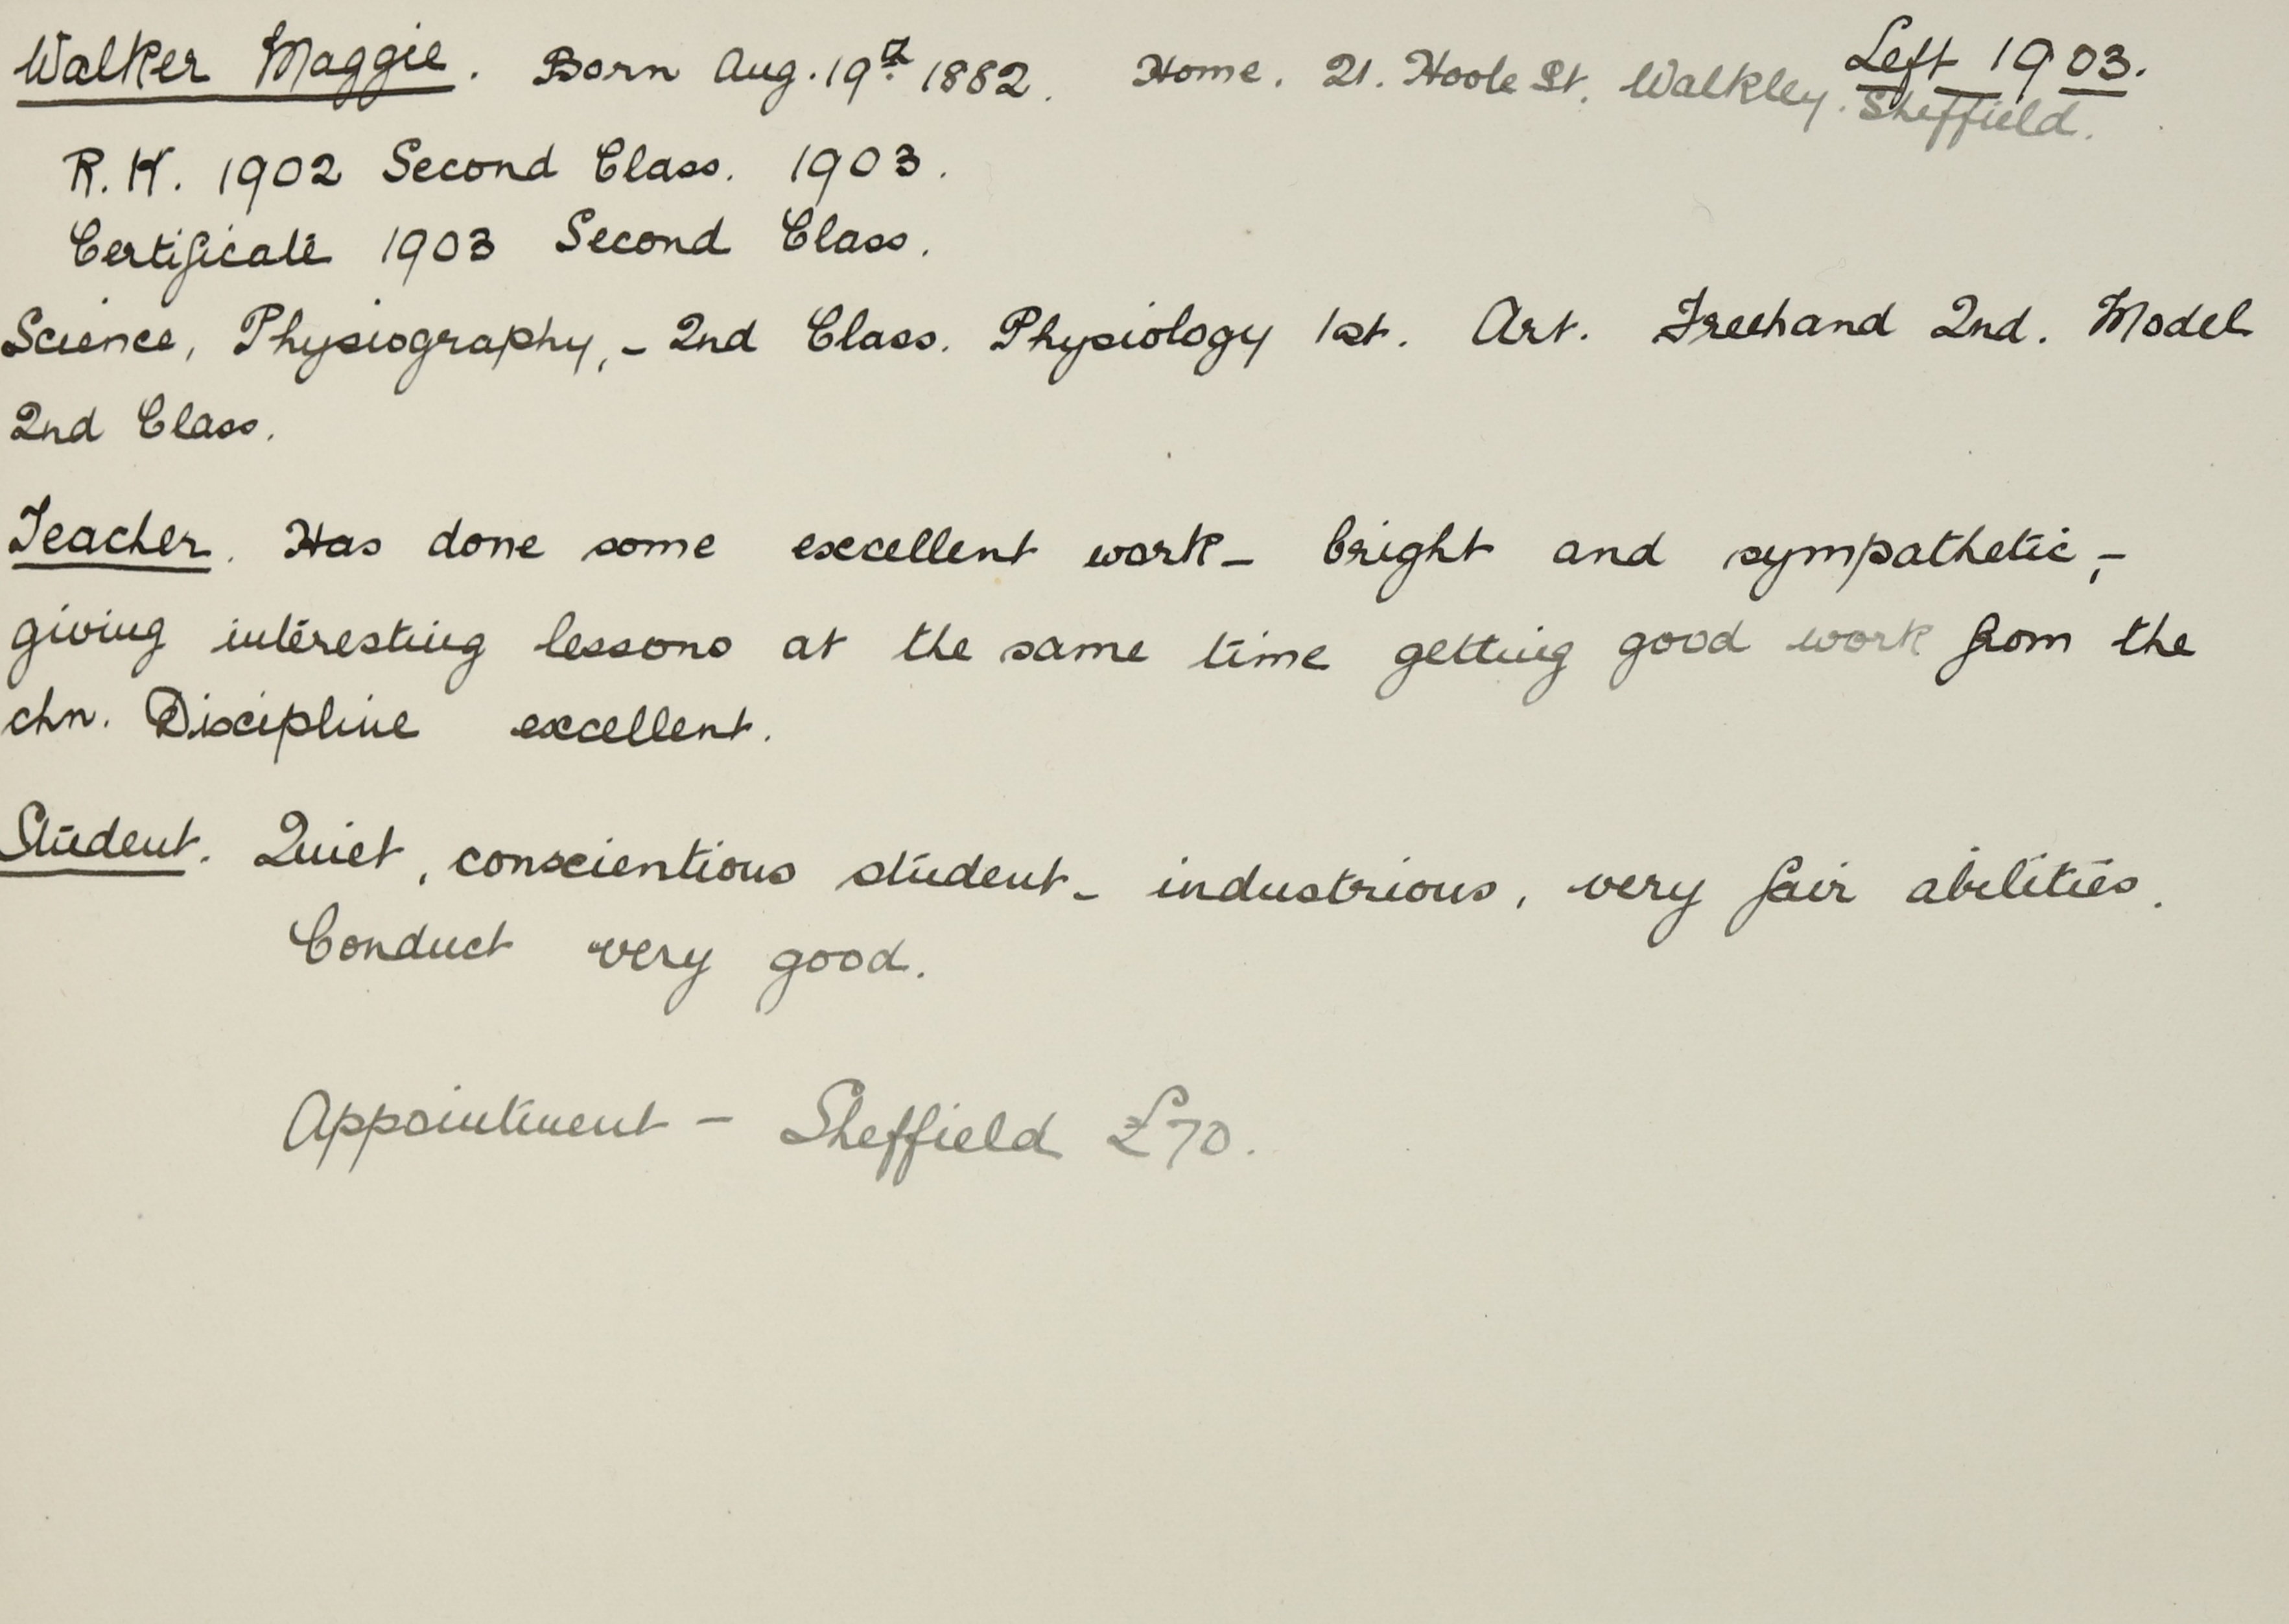 Walker Maggie. Born Aug. 19th 1882. Home. 21. Hoole St. Walkley. Sheffield. Left 1903.
R.K. 1902 Second Class. 1903.
Certificate 1903 Second Class.
Science, Physiography, - 2nd Class. Physiology 1st. Art. Freehand 2nd. Model
2nd Class.
Teacher. Has done some excellent work - bright and sympathetic, -
giving interesting lessons at the same time getting good work from the
chn. Discipline excellent.
Student. Quiet, conscientious student - industrious, very fair abilities.
Conduct very good.
Appointment - Sheffield £70.